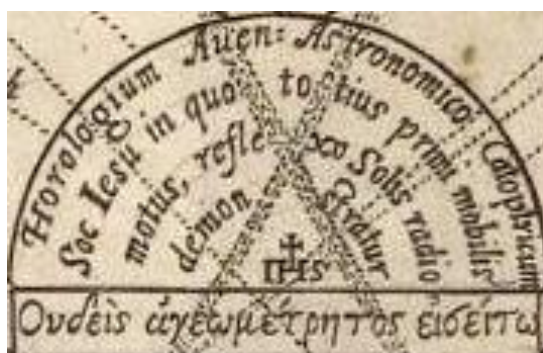 Horologium Auen: Astronomico Catoptricum
Soc Iesu in quo totius primi mobilis
motus, reflexo Solis radio
demonstratur
IHS
Ουδεὶς ἀγεωμέτρητος εἰσείτω